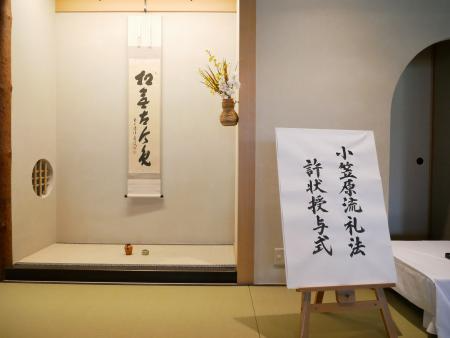 小笠原流礼法
許状授与式
松無古今色